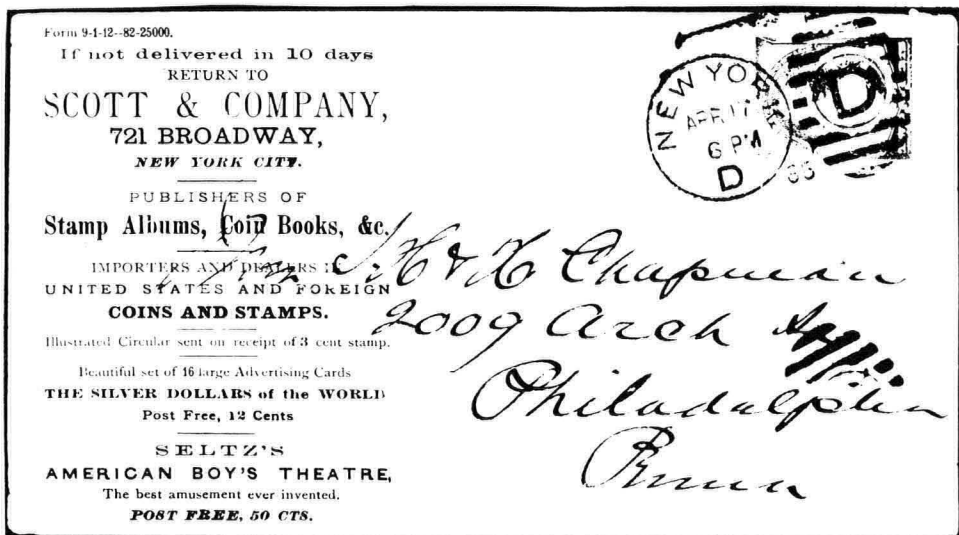 Form 9-1-12--82-25000.
If not delivered in 10 days
RETURN TO
SCOTT & COMPANY,
721 BROADWAY,
NEW YORK CITY.
PUBLISHERS OF
Stamp Albums, Coin Books, &c.
IMPORTERS AND DEALERS IN
UNITED STATES AND FOREIGN
COINS AND STAMPS.
Illustrated Circular sent on receipt of 3 cent stamp.
Beautiful set of 16 large Advertising Cards
THE SILVER DOLLARS of the WORLD
Post Free, 12 Cents
SELTZ'S
AMERICAN BOY'S THEATRE,
The best amusement ever invented.
POST FREE, 50 CTS.
NEW YORK
APR 17
6 PM
D
D
S. H & H Chapman
2009 Arch
Philadelphia
Penna